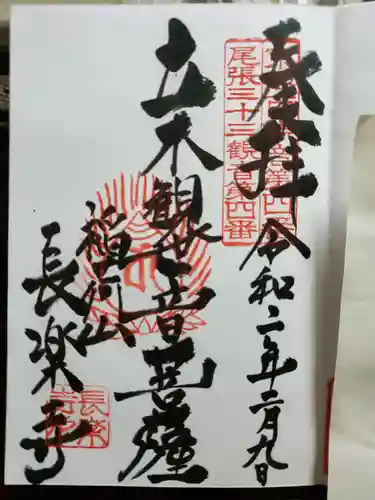 奉拝
尾張三十三観音第四番
令和二年二月九日
立木観世音菩薩
稲荷山
長楽寺
長楽寺